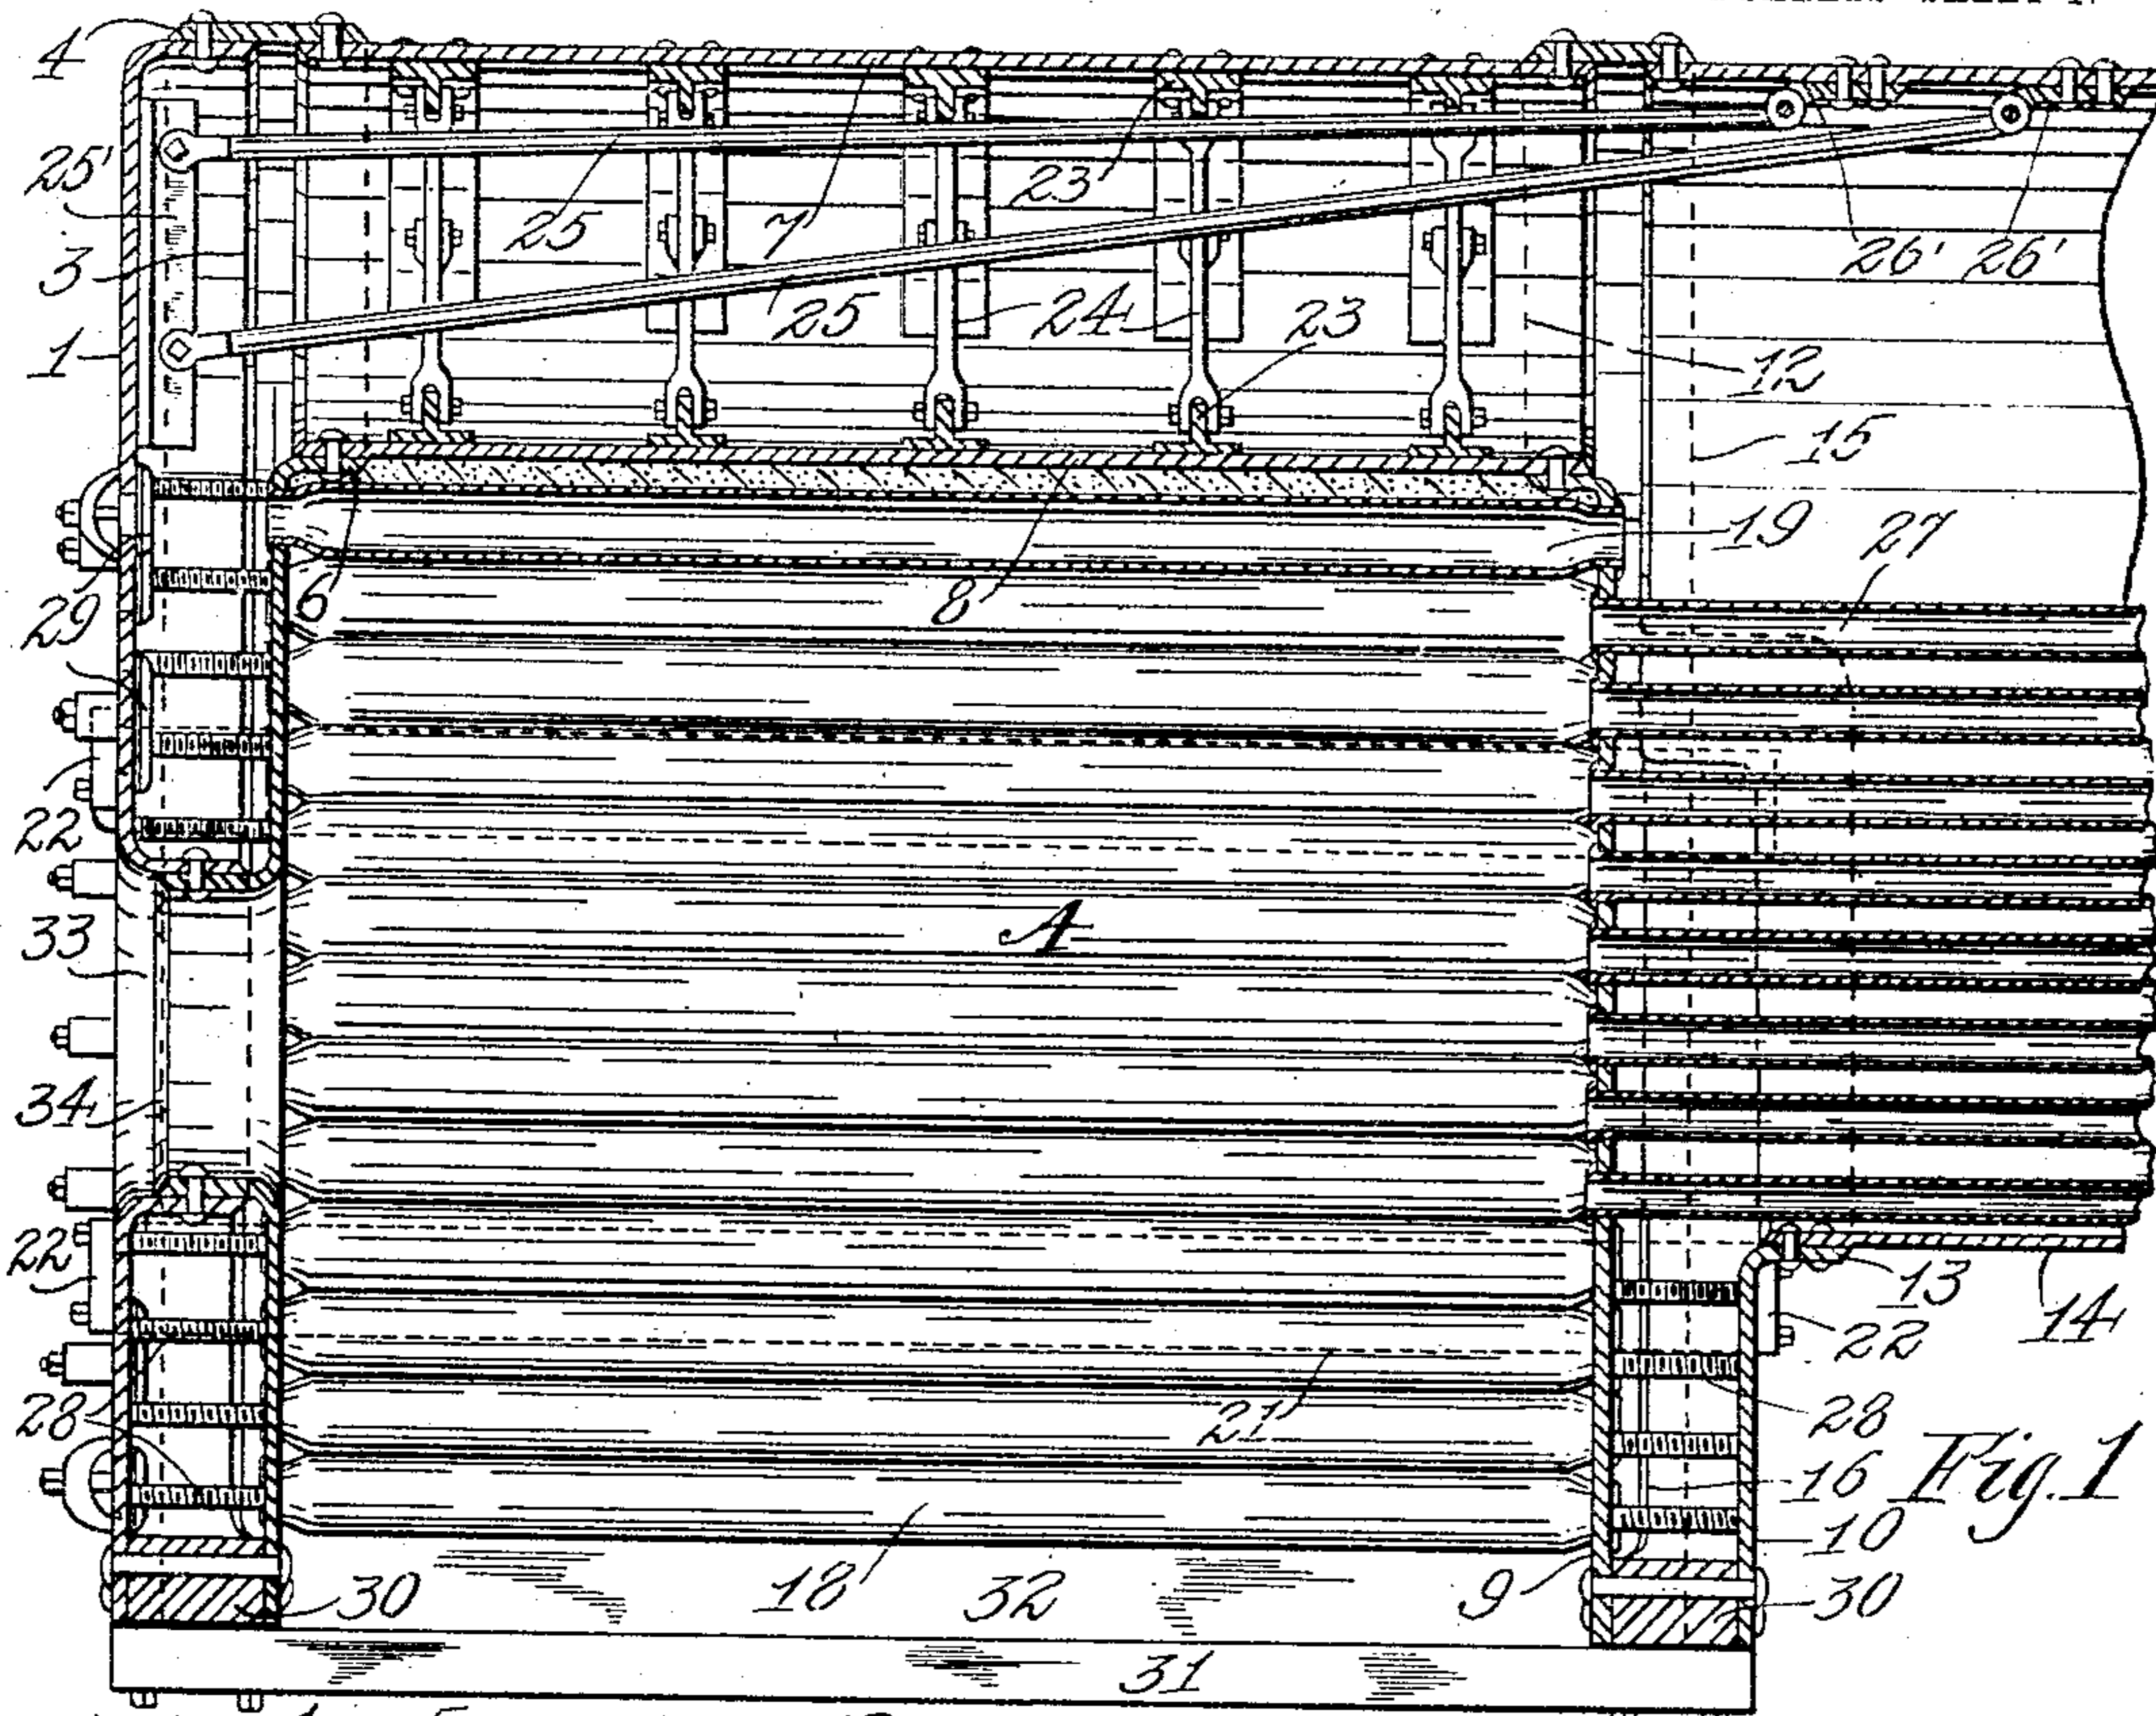 4
25'
3
1
25
7
23'
25
24
23
26'
26'
12
15
19
27
29
6
8
22
33
A
34
22
13
14
22
28
21
28
16
Fig. 1
10
18
32
9
30
30
31